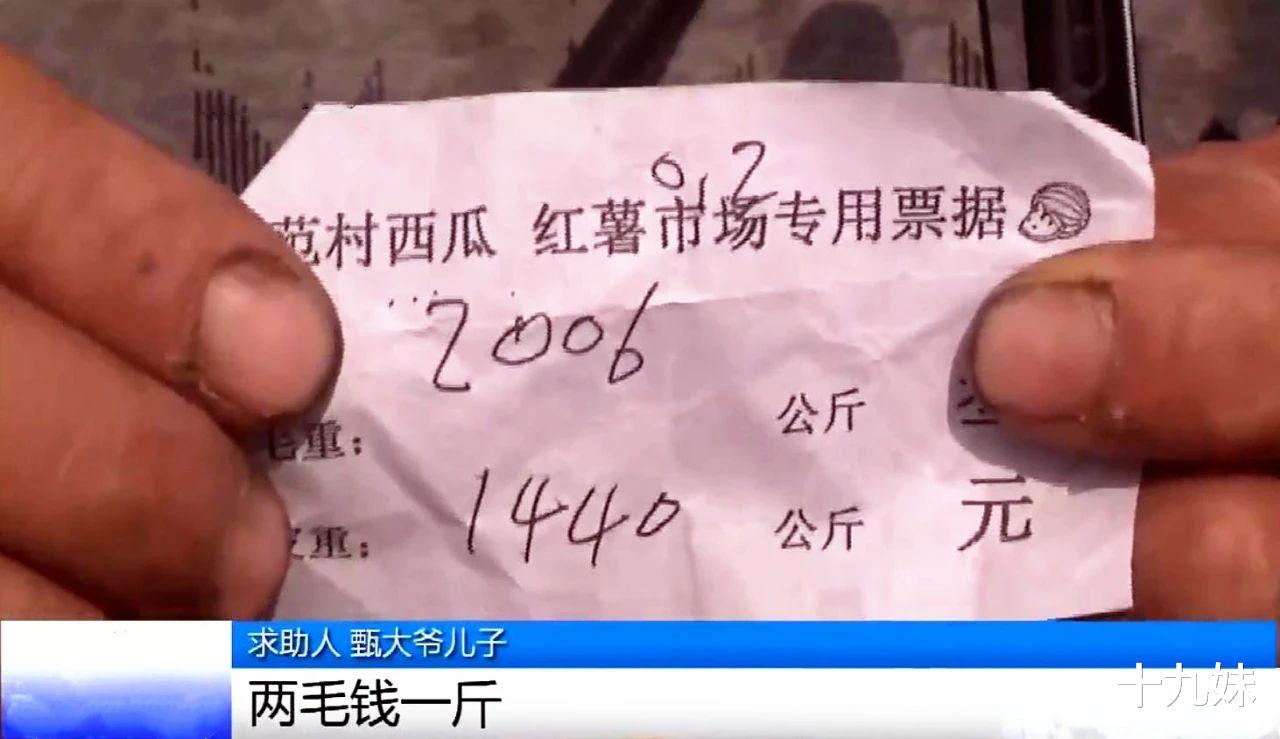 0.2
范村西瓜 红薯市场专用票据
2006
毛重： 公斤
1440
皮重： 公斤 元
求助人 甄大爷儿子
两毛钱一斤
十九妹